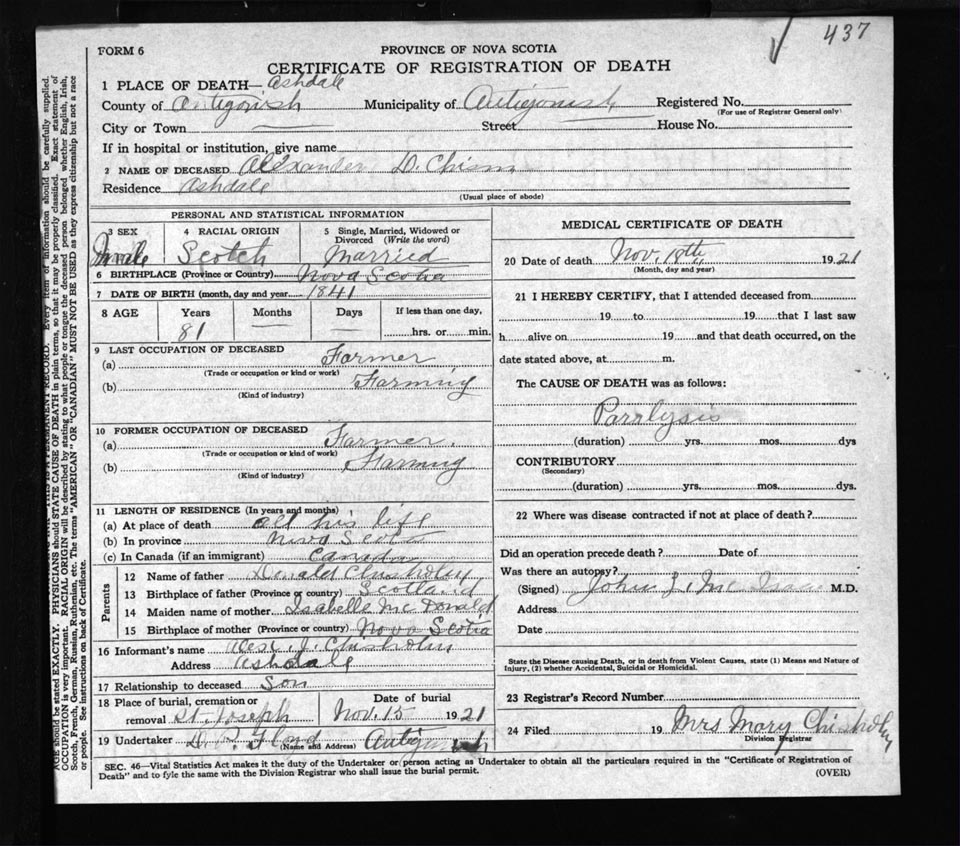 437
FORM 6
PROVINCE OF NOVA SCOTIA
CERTIFICATE OF REGISTRATION OF DEATH
1 PLACE OF DEATH— Ashdale
County of Antigonish Municipality of Antigonish Registered No.
(For use of Registrar General only)
City or Town Street House No.
If in hospital or institution, give name
2 NAME OF DECEASED Alexander D. Chism
Residence Ashdale
(Usual place of abode)
PERSONAL AND STATISTICAL INFORMATION
3 SEX 4 RACIAL ORIGIN 5 Single, Married, Widowed or
Divorced (Write the word)
Male Scotch Married
6 BIRTHPLACE (Province or Country) Nova Scotia
7 DATE OF BIRTH (month, day and year) 1841
8 AGE Years Months Days If less than one day,
81 — — hrs. or min.
9 LAST OCCUPATION OF DECEASED
(a) Farmer
(Trade or occupation or kind or work)
(b) Farming
(Kind of industry)
10 FORMER OCCUPATION OF DECEASED
(a) Farmer.
(Trade or occupation or kind of work)
(b) Farming
(Kind of industry)
11 LENGTH OF RESIDENCE (In years and months)
(a) At place of death all his life
(b) In province Nova Scotia
(c) In Canada (if an immigrant) Canada
Parents
12 Name of father Donald Chisholm
13 Birthplace of father (Province or country) Scotland
14 Maiden name of mother Isabelle Mc Donald
15 Birthplace of mother (Province or country) Nova Scotia
16 Informant's name Alex. J. Chisholm
Address Ashdale
17 Relationship to deceased Son
18 Place of burial, cremation or Date of burial
removal St. Joseph Nov. 15 1921
19 Undertaker D. Floyd Antigonish
(Name and Address)
MEDICAL CERTIFICATE OF DEATH
20 Date of death Nov. 18th, 1921
(Month, day and year)
21 I HEREBY CERTIFY, that I attended deceased from
19 to 19 that I last saw
h alive on 19 and that death occurred, on the
date stated above, at m.
The CAUSE OF DEATH was as follows:
Paralysis
(duration) yrs. mos. dys
CONTRIBUTORY
(Secondary)
(duration) yrs. mos. dys.
22 Where was disease contracted if not at place of death?
Did an operation precede death? Date of
Was there an autopsy?
(Signed) John Mc Isaac M.D.
Address
Date
State the Disease causing Death, or in death from Violent Causes, state (1) Means and Nature of
Injury, (2) whether Accidental, Suicidal or Homicidal.
23 Registrar's Record Number
24 Filed 19 Mrs Mary Chisholm
Division Registrar
SEC. 46—Vital Statistics Act makes it the duty of the Undertaker or person acting as Undertaker to obtain all the particulars required in the "Certificate of Registration of
Death" and to fyle the same with the Division Registrar who shall issue the burial permit.
(OVER)